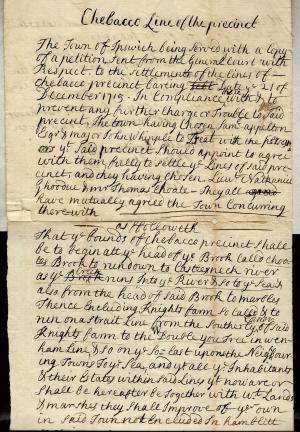 Chebacco Line of the precinct
The Town of Ipswich being Served with a Copy
of a petition Sent from the Generall Court with
Respect to the Settlement of the lines of
Chebacco precinct baring Date ye 21 of
December 1715. In Compliance with &
prevent any further Charge or Trouble to Said
precinct, The town having Chosen Samll appelton
Esqr & major John Whipple to Treat with the
ye Said precinct Should appoint to agree
with them fully to settle ye Lines of Said pre
cinct, and they having chosen Lieut Nathaniel
Goodhue & mr Thomas Choate They all
have mutually agreed the Town Concurring
there with
as Followeth
That ye bounds of Chebacco precinct Shall
be to begin att ye head of ye Brook Called choa=
tes Brook to run down to Castle neck river
as ye Brook runs Into ye River & so to ye Sea &
also from the head of Said Brook to marbles
Thence Including Knights farm So Called & to
run on a Strait Line from the Southerly of Said
Knights farm to the Double you Tree in wen
ham Line & so on ye So= East upon the Neighbour
ing Towns To ye Sea, and yt all ye Inhabitants
& their Estats within Said Lines yt now are or
Shall be hereafter be Together with wt Lands
& marshes they Shall Improve of ye own
in Said Town not Encluded In hamblitt